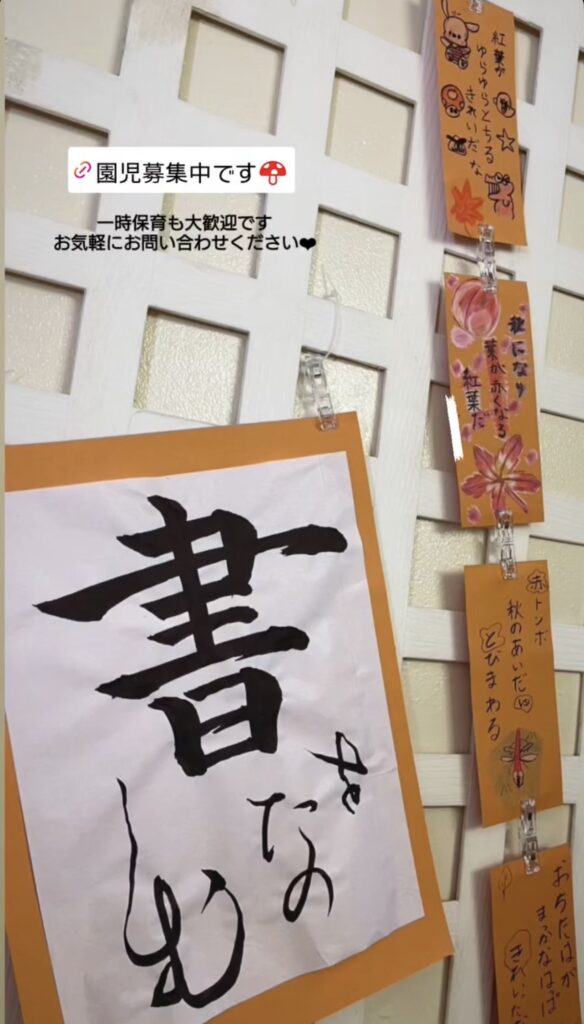 園児募集中です
一時保育も大歓迎です
お気軽にお問い合わせください
書
をたの
しむ
紅葉が
ゆらゆらとちる
きれいだな
秋になり
葉が赤くなる
紅葉だ
赤トンボ
秋のあいだ
とびまわる
おちたはが
まっかなはっぱ
きれいだ